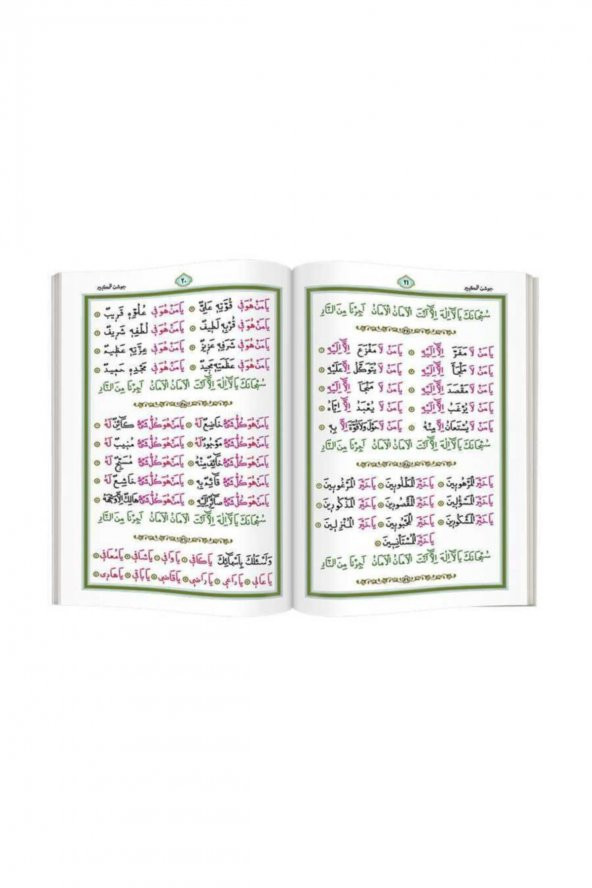 ٢٠ جوشن الكبير
يَا مَنْ هُوَ فِي قُوَّتِهِ عَلِيٌّ ۞ يَا مَنْ هُوَ فِي عُلُوِّهِ قَرِيبٌ
يَا مَنْ هُوَ فِي قُرْبِهِ لَطِيفٌ ۞ يَا مَنْ هُوَ فِي لُطْفِهِ شَرِيفٌ
يَا مَنْ هُوَ فِي شَرَفِهِ عَزِيزٌ ۞ يَا مَنْ هُوَ فِي عِزَّتِهِ عَظِيمٌ
يَا مَنْ هُوَ فِي عَظَمَتِهِ مَجِيدٌ ۞ يَا مَنْ هُوَ فِي مَجْدِهِ حَمِيدٌ
سُبْحَانَكَ يَا لَا اِلٰهَ اِلَّا اَنْتَ الْاَمَانُ الْاَمَانُ اَجِرْنَا مِنَ النَّارِ
يَا مَنْ هُوَ كُلُّ شَيْءٍ خَاضِعٌ لَهُ ۞ يَا مَنْ هُوَ كُلُّ شَيْءٍ كَائِنٌ لَهُ
يَا مَنْ هُوَ كُلُّ شَيْءٍ مَوْجُودٌ لَهُ ۞ يَا مَنْ هُوَ كُلُّ شَيْءٍ مُنِيبٌ لَهُ
يَا مَنْ هُوَ كُلُّ شَيْءٍ خَائِفٌ مِنْهُ ۞ يَا مَنْ هُوَ كُلُّ شَيْءٍ مُسَبِّحٌ لَهُ
يَا مَنْ هُوَ كُلُّ شَيْءٍ قَائِمٌ بِهِ ۞ يَا مَنْ هُوَ كُلُّ شَيْءٍ خَاشِعٌ لَهُ
يَا مَنْ هُوَ كُلُّ شَيْءٍ صَائِرٌ اِلَيْهِ ۞ يَا مَنْ هُوَ كُلُّ شَيْءٍ هَالِكٌ اِلَّا وَجْهَهُ
سُبْحَانَكَ يَا لَا اِلٰهَ اِلَّا اَنْتَ الْاَمَانُ الْاَمَانُ اَجِرْنَا مِنَ النَّارِ
وَنَسْئَلُكَ بِاَسْمَائِكَ يَا كَافِي ۞ يَا وَافِي ۞ يَا شَافِي ۞ يَا مُعَافِي
يَا عَالِي ۞ يَا دَاعِي ۞ يَا رَاضِي ۞ يَا قَاضِي ۞ يَا بَاقِي ۞ يَا هَادِي
٢١ جوشن الكبير
سُبْحَانَكَ يَا لَا اِلٰهَ اِلَّا اَنْتَ الْاَمَانُ الْاَمَانُ اَجِرْنَا مِنَ النَّارِ
يَا مَنْ لَا مَفَرَّ اِلَّا اِلَيْهِ ۞ يَا مَنْ لَا مَفْزَعَ اِلَّا اِلَيْهِ ۞
يَا مَنْ لَا مَلْجَأَ اِلَّا اِلَيْهِ ۞ يَا مَنْ لَا يُتَوَكَّلُ اِلَّا عَلَيْهِ ۞
يَا مَنْ لَا مَقْصَدَ اِلَّا اِلَيْهِ ۞ يَا مَنْ لَا مَنْجَأَ اِلَّا اِلَيْهِ ۞
يَا مَنْ لَا يُرْغَبُ اِلَّا اِلَيْهِ ۞ يَا مَنْ لَا يُعْبَدُ اِلَّا اِيَّاهُ ۞
يَا مَنْ لَا يُسْتَعَانُ اِلَّا مِنْهُ ۞ يَا مَنْ لَا حَوْلَ وَلَا قُوَّةَ اِلَّا بِهِ ۞
سُبْحَانَكَ يَا لَا اِلٰهَ اِلَّا اَنْتَ الْاَمَانُ الْاَمَانُ اَجِرْنَا مِنَ النَّارِ
يَا خَيْرَ الْمَرْهُوبِينَ ۞ يَا خَيْرَ الْمَطْلُوبِينَ ۞ يَا خَيْرَ الْمَرْغُوبِينَ ۞
يَا خَيْرَ الْمَسْئُولِينَ ۞ يَا خَيْرَ الْمَقْصُودِينَ ۞ يَا خَيْرَ الْمَذْكُورِينَ ۞
يَا خَيْرَ الْمَشْكُورِينَ ۞ يَا خَيْرَ الْمَحْبُوبِينَ ۞ يَا خَيْرَ الْمُنْزِلِينَ ۞
يَا خَيْرَ الْمُسْتَأْنِسِينَ ۞
سُبْحَانَكَ يَا لَا اِلٰهَ اِلَّا اَنْتَ الْاَمَانُ الْاَمَانُ اَجِرْنَا مِنَ النَّارِ